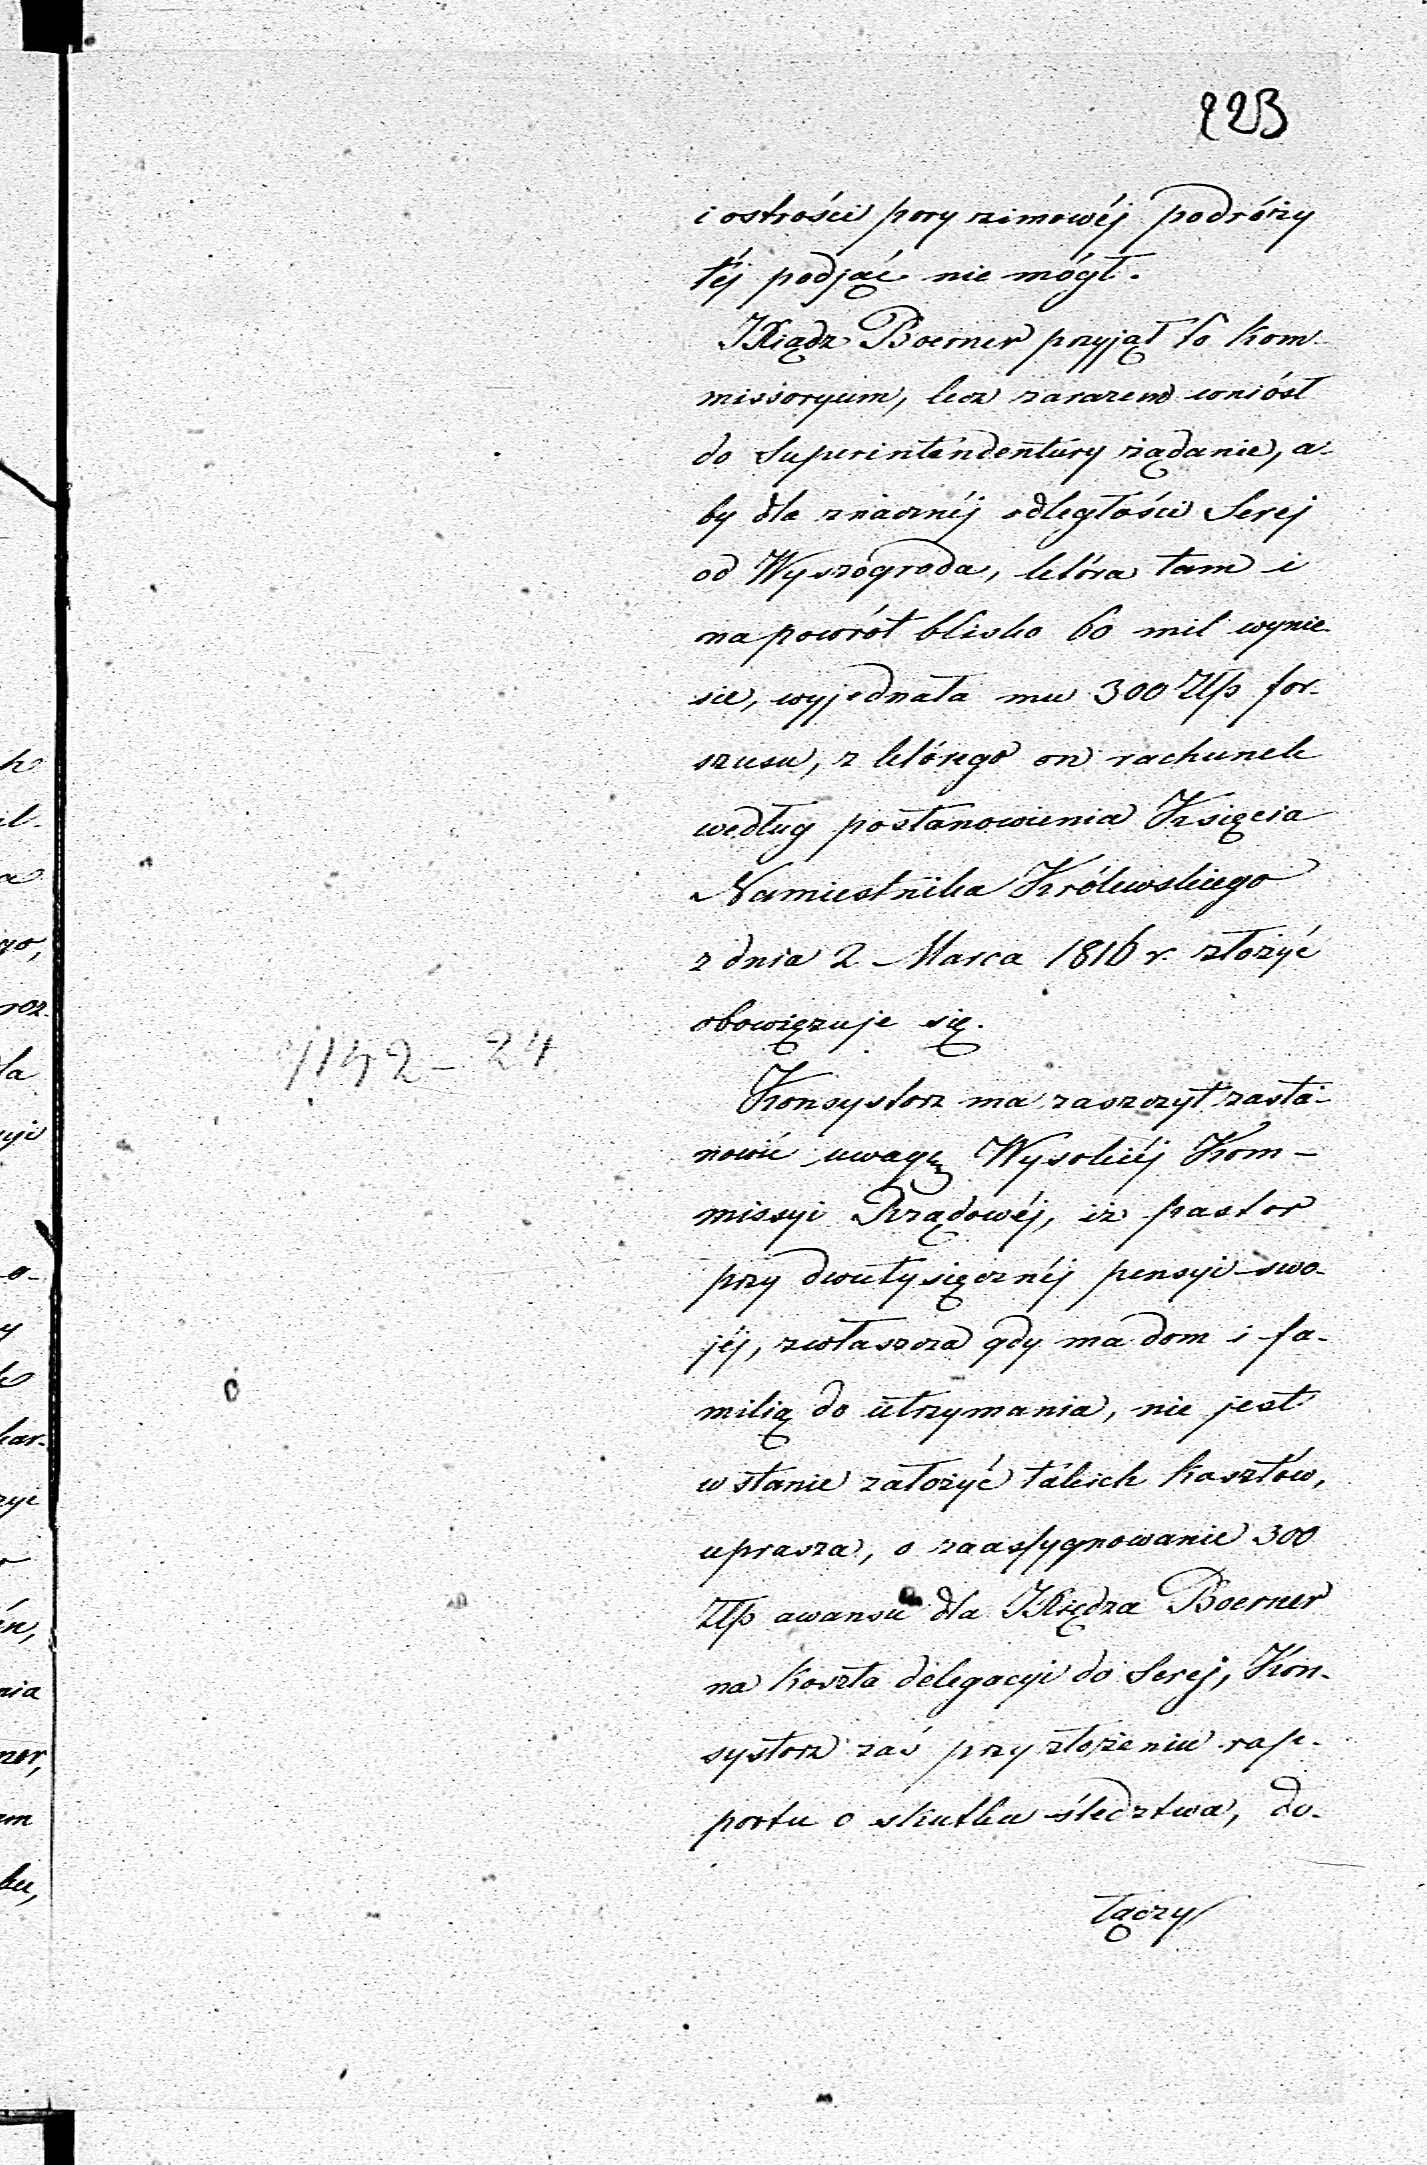 223
i ostrości pory zimowéj podróży
téj podjąć nie mógł.
JXiądz Boerner przyjął to kom-
missoryum, lecz zarazem wniósł
do Superintendentury żądanie, a-
by dla znacznéj odległości Serej
od Wyszogroda, która tam i
na powrót blisko 60 mil wynie-
sie, wyjednała mu 300 Złp for-
szusu, z którego on rachunek
według postanowienia Księcia
Namiestnika Królewskiego
z dnia 2 Marca 1816 r. złożyć
obowięzuje się.
7152-24
Konsystorz ma zaszczyt zasta-
nowić uwagę Wysokiéj Kom-
missyi Rządowéj, iż pastor
przy dwutysięcznéj pensyi swo-
jéj, zwłaszcza gdy ma dom i fa-
milią do utrzymania, nie jest
w stanie założyć takich kosztów,
uprasza, o zaassygnowanie 300
Złp awansu dla JXiędza Boerner
na koszta delegacyi do Serej, Kon-
systorz zaś przy złożeniu rap-
portu o skutku śledztwa, do-
łączy